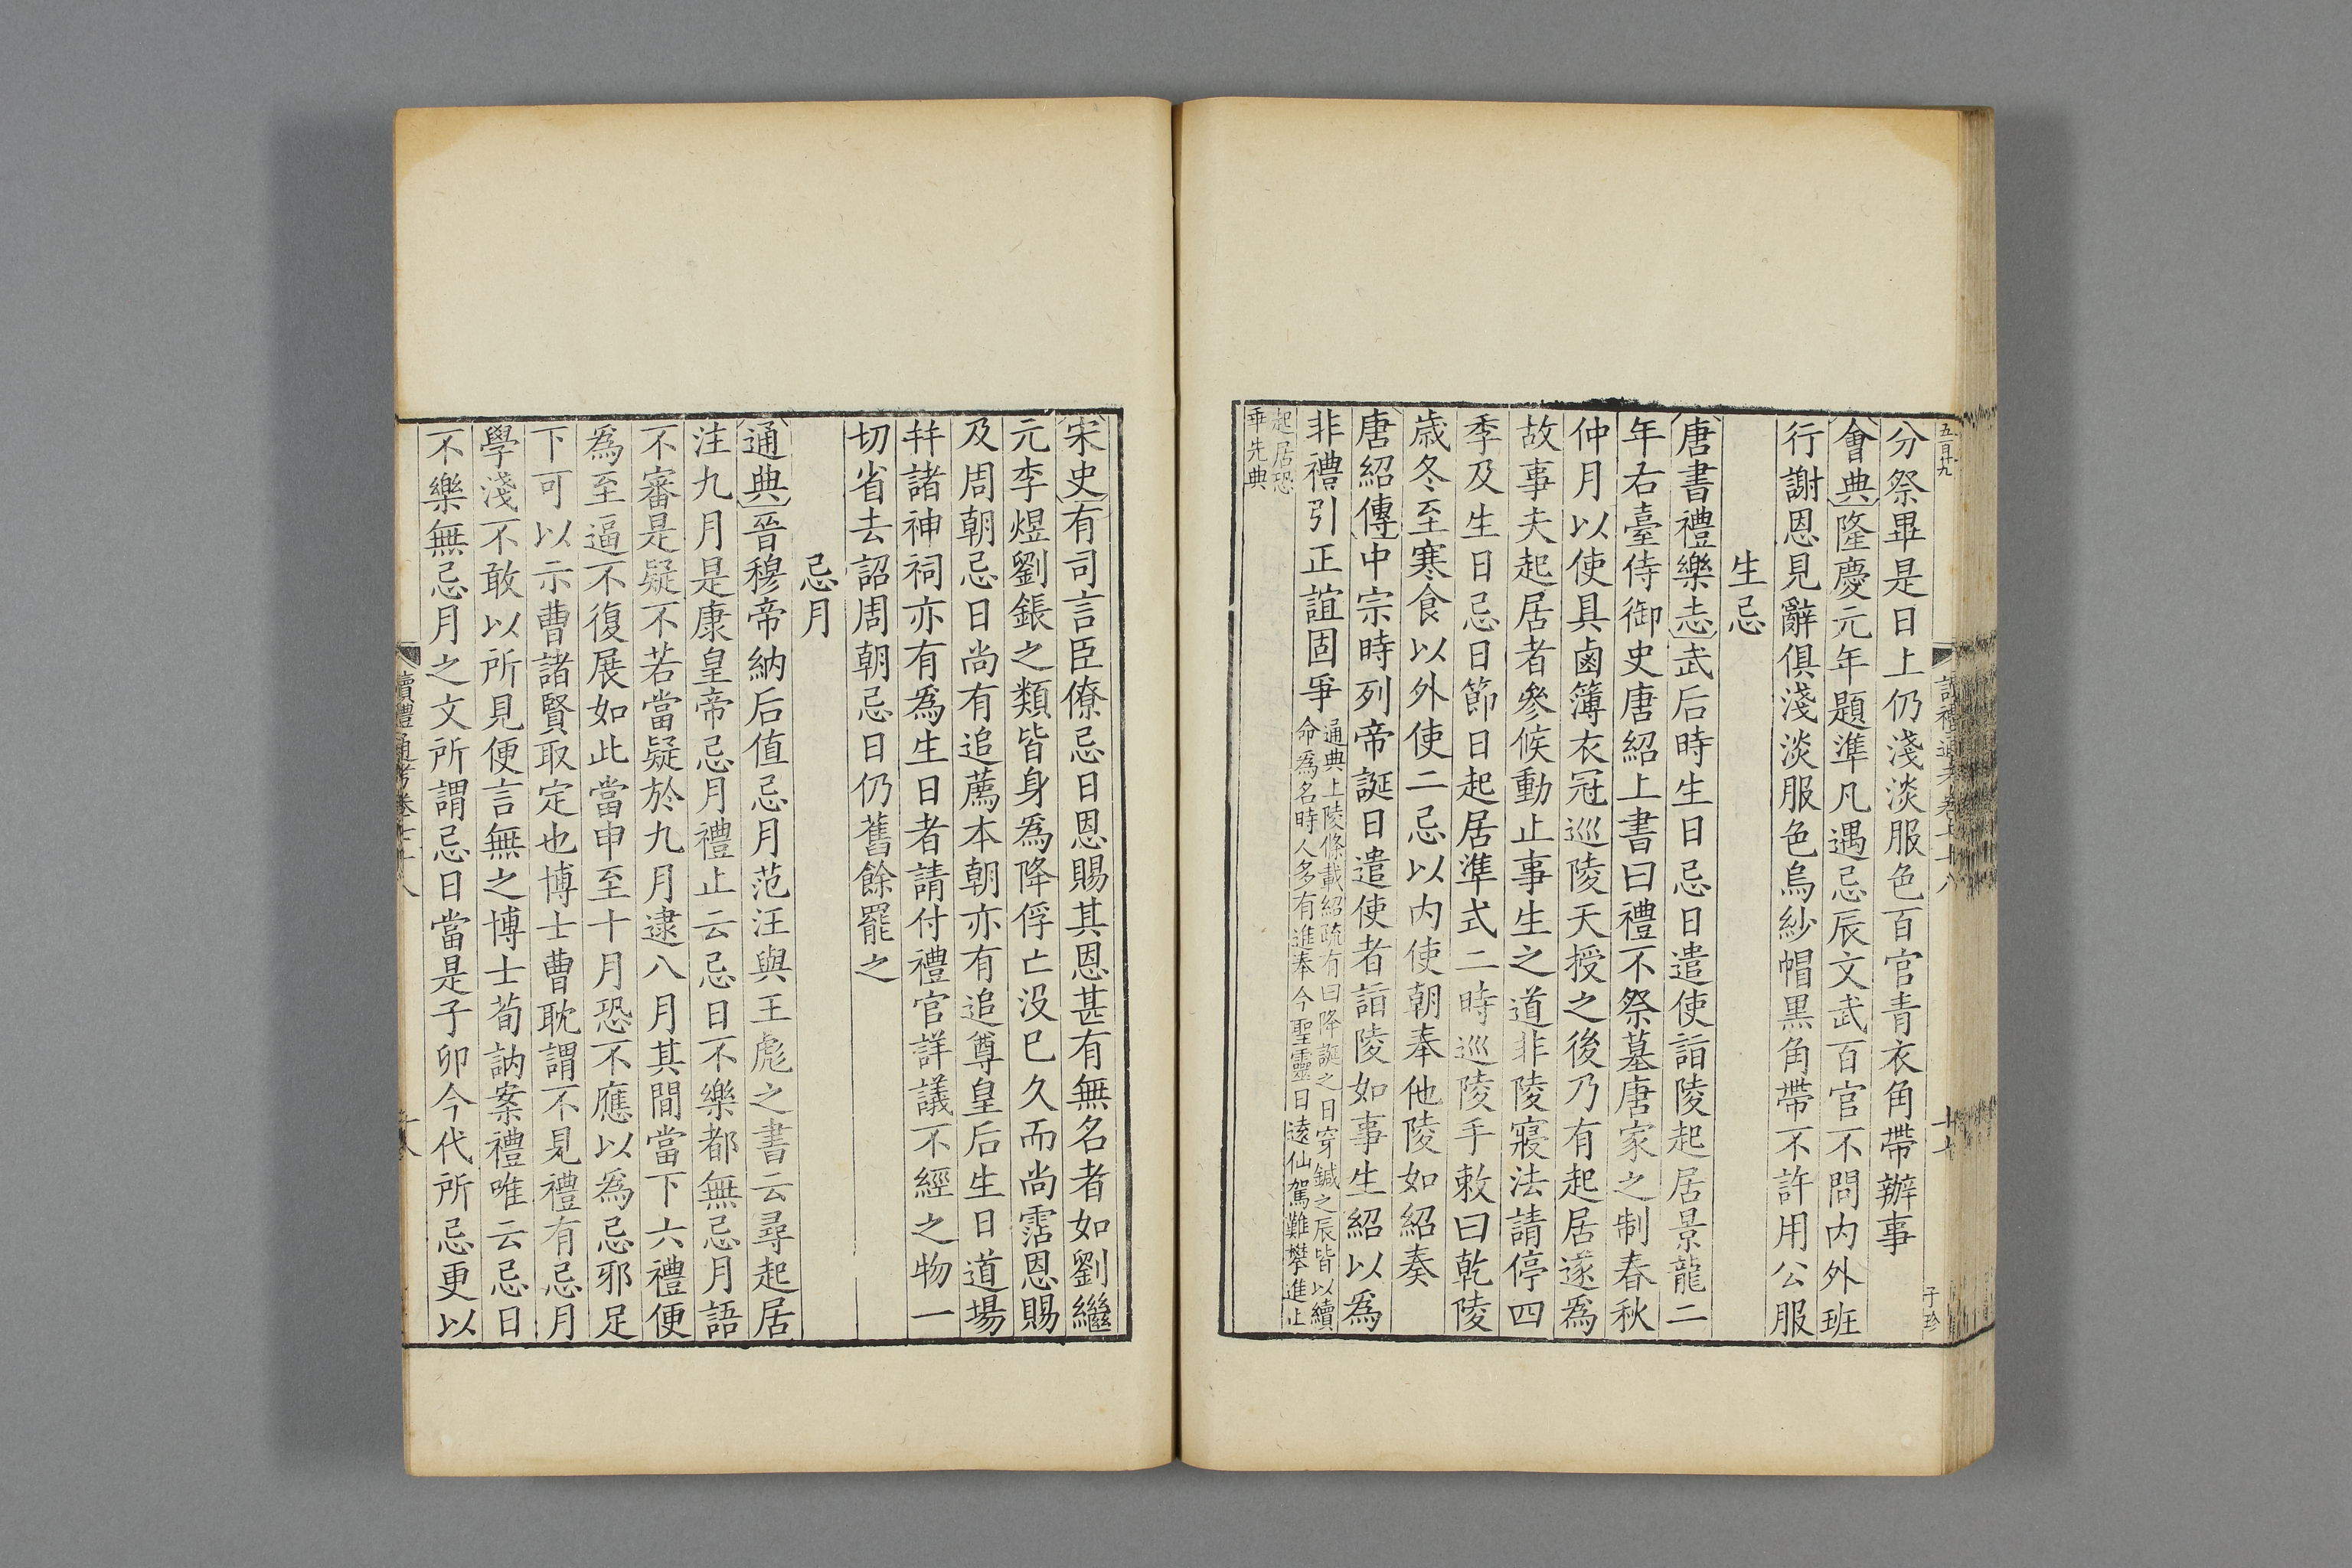 五百九
讀禮通考卷七十八
十七
子珍
分祭畢是日上仍淺淡服色百官青衣角帶辦事
會典隆慶元年題準凡遇忌辰文武百官不問内外班
行謝恩見辭俱淺淡服色烏紗帽黑角帶不許用公服
生忌
唐書禮樂志武后時生日忌日遣使詣陵起居景龍二
年右臺侍御史唐紹上書曰禮不祭墓唐家之制春秋
仲月以使具鹵簿衣冠巡陵天授之後乃有起居遂爲
故事夫起居者參候動止事生之道非陵寢法請停四
季及生日忌日節日起居準式二時巡陵手敕曰乾陵
歲冬至寒食以外使二忌以内使朝奉他陵如紹奏
唐紹傳中宗時列帝誕日遣使者詣陵如事生紹以爲
非禮引正誼固爭
通典上陵條載紹疏有曰降誕之日穿鍼之辰皆以續
命爲名時人多有進奉今聖靈日遠仙駕難攀進止
起居恐
乖先典
宋史有司言臣僚忌日恩賜其恩甚有無名者如劉繼
元李煜劉鋹之類皆身爲降俘亡沒已久而尚霑恩賜
及周朝忌日尚有追薦本朝亦有追尊皇后生日道場
并諸神祠亦有爲生日者請付禮官詳議不經之物一
切省去詔周朝忌日仍舊餘罷之
忌月
通典晉穆帝納后值忌月范汪與王彪之書云尋起居
注九月是康皇帝忌月禮止云忌日不樂都無忌月語
不審是疑不若當疑於九月逮八月其間當下六禮便
爲至逼不復展如此當申至十月恐不應以爲忌邪足
下可以示曹諸賢取定也博士曹耽謂不見禮有忌月
學淺不敢以所見便言無之博士荀訥案禮唯云忌日
不樂無忌月之文所謂忌日當是子卯今代所忌更以
讀禮通考卷七十八
十八